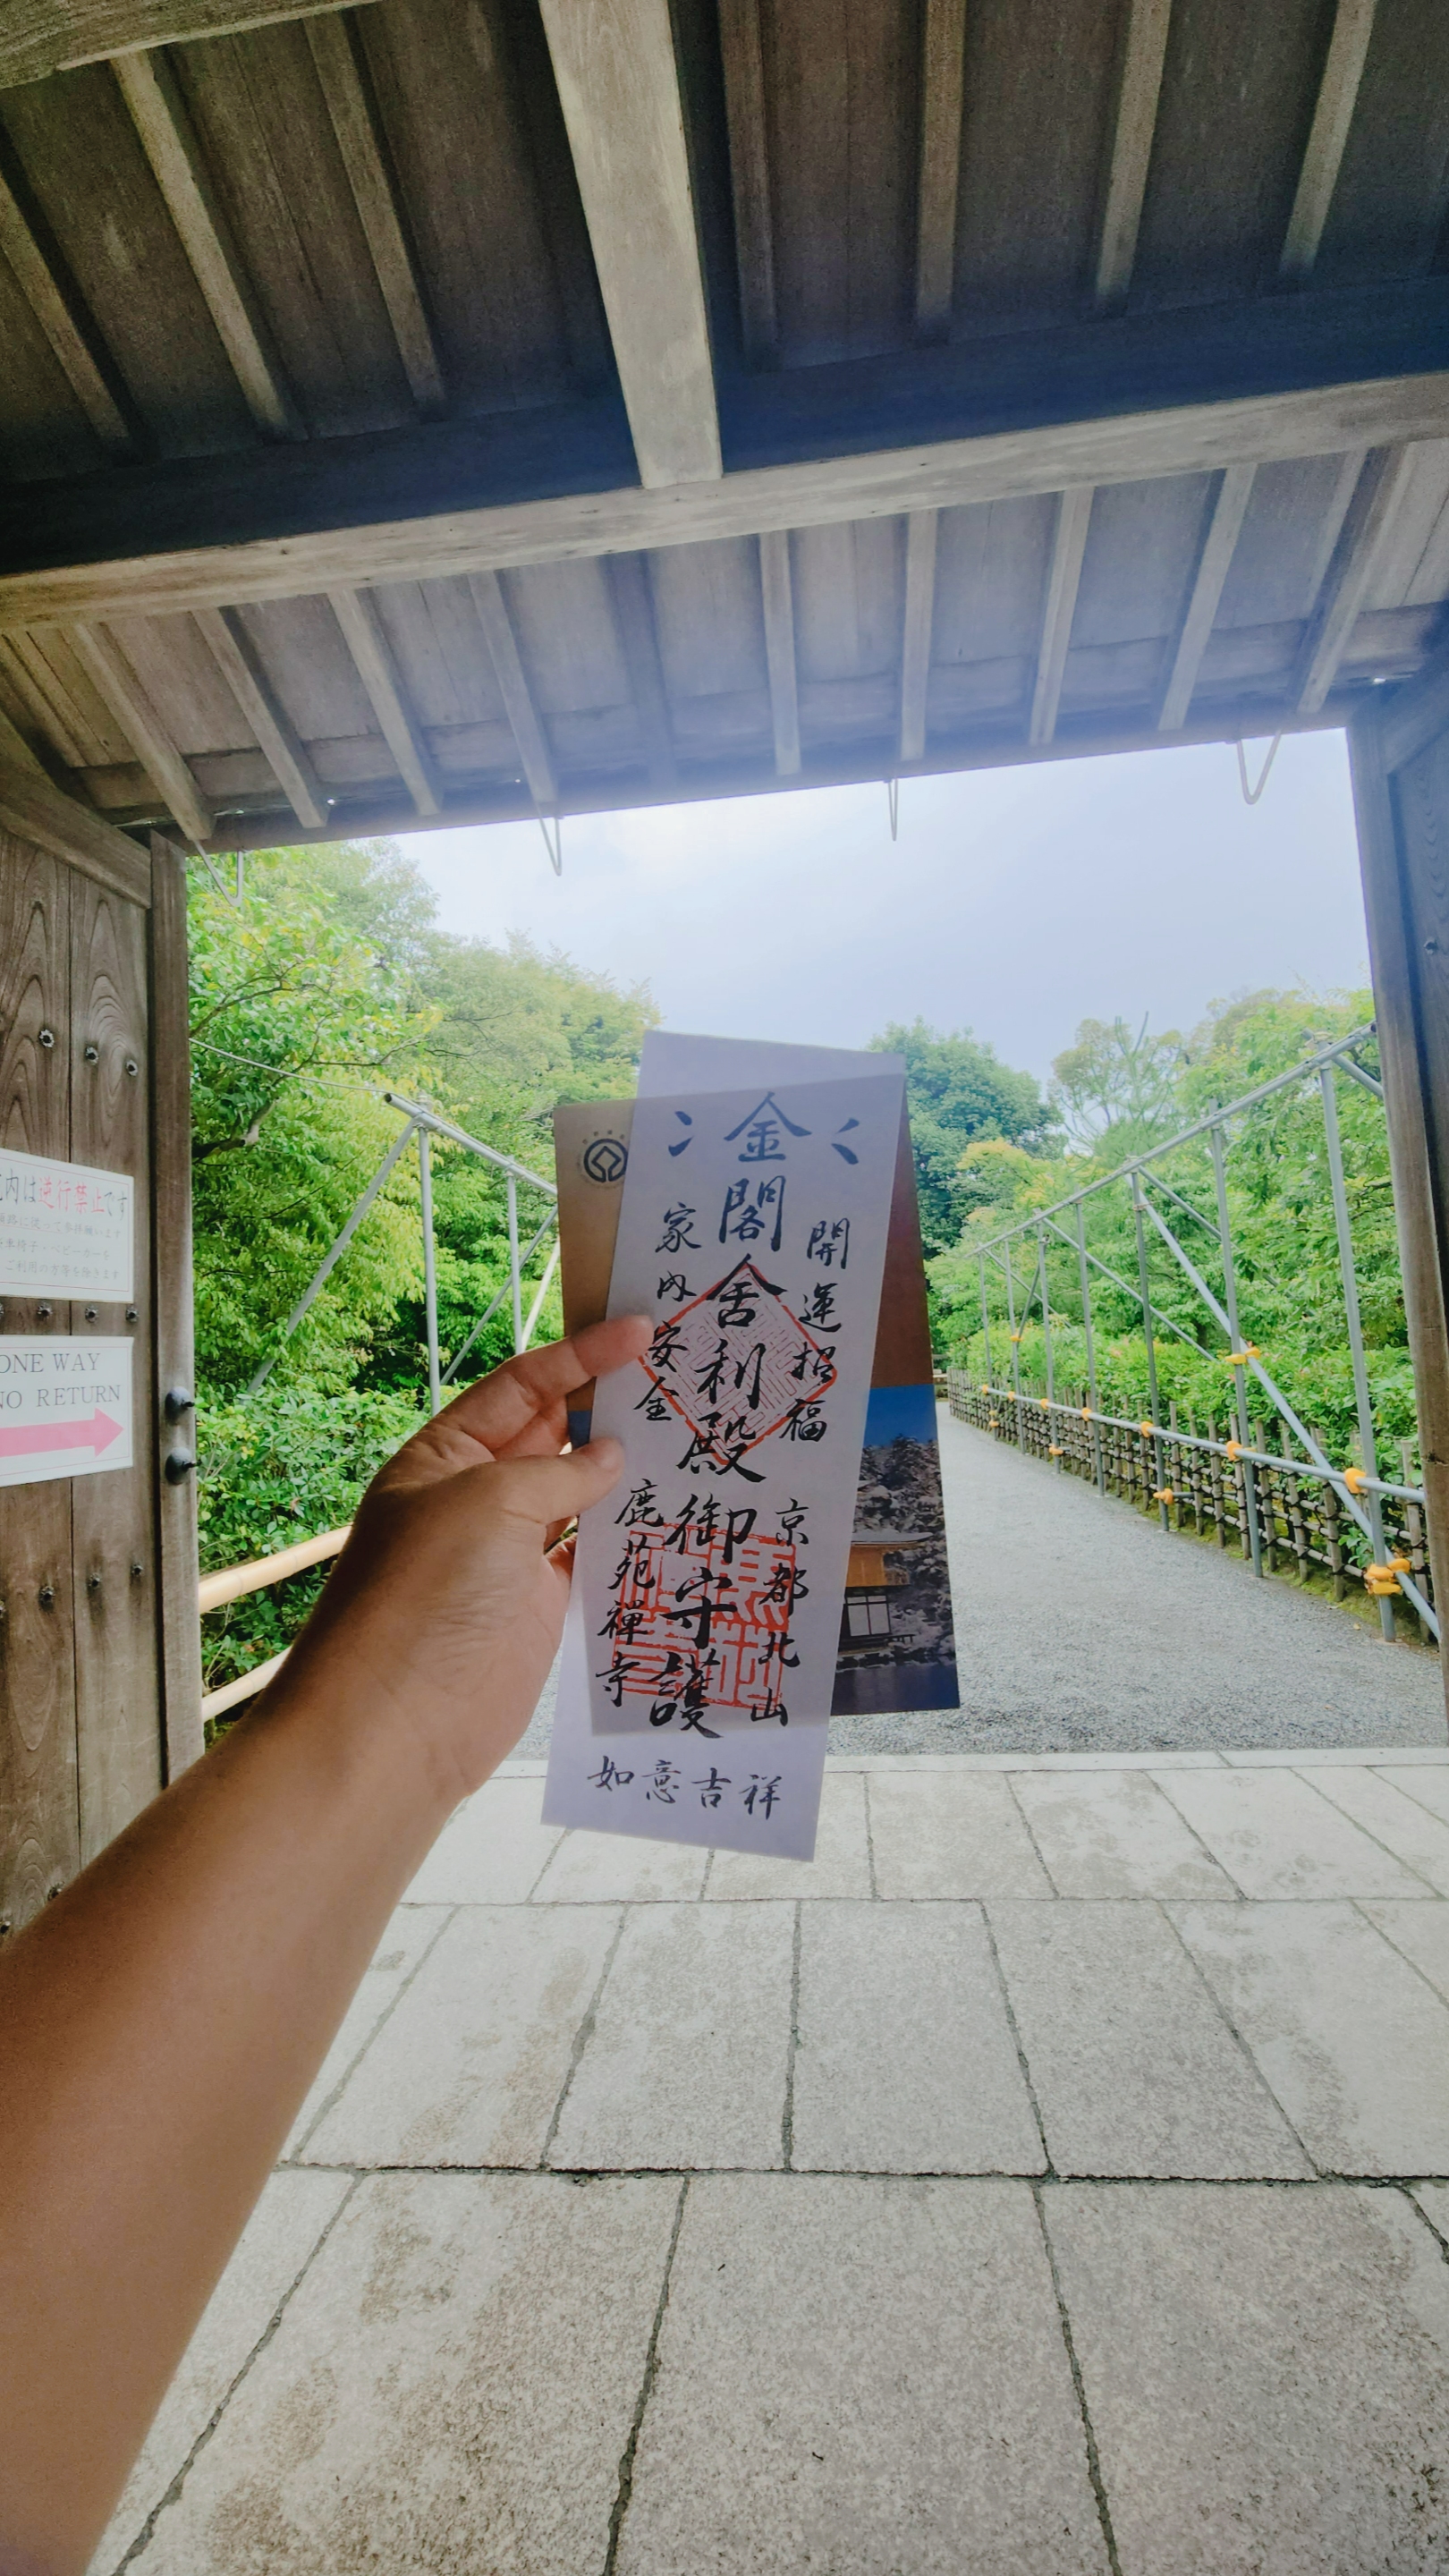 内は逆行禁止です
ONE WAY
NO RETURN
金閣舎利殿御守護
開運招福
家内安全
京都北山
鹿苑禅寺
如意吉祥